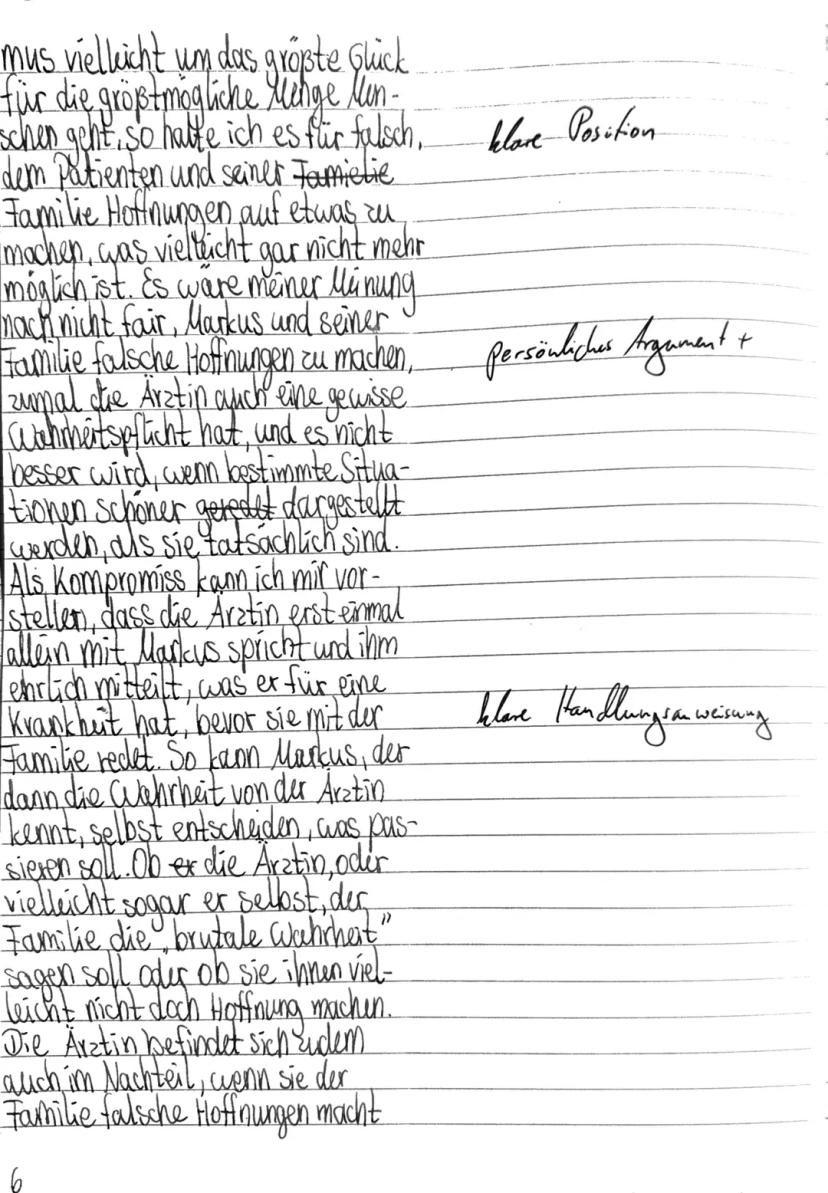 mus vielleicht um das größte Glück
für die größtmögliche Menge Men-
schen geht, so halte ich es für falsch,
klare Position
dem Patienten und seiner Famielie
Familie Hoffnungen auf etwas zu
machen, was vielleicht gar nicht mehr
möglich ist. Es wäre meiner Meinung
nach nicht fair, Markus und seiner
Familie falsche Hoffnungen zu machen,
persönliches Argument +
zumal die Ärztin auch eine gewisse
Wahrheitspflicht hat, und es nicht
besser wird, wenn bestimmte Situa-
tionen schöner geredet dargestellt
werden, als sie tatsächlich sind.
Als Kompromiss kann ich mir vor-
stellen, dass die Ärztin erst einmal
allein mit Markus spricht und ihm
ehrlich mitteilt, was er für eine
Krankheit hat, bevor sie mit der
klare Handlungsanweisung
Familie redet. So kann Markus, der
dann die Wahrheit von der Ärztin
kennt, selbst entscheiden, was pas-
sieren soll. Ob er die Ärztin, oder
vielleicht sogar er selbst, der
Familie die „brutale Wahrheit"
sagen soll oder ob sie ihnen viel-
leicht nicht doch Hoffnung machen.
Die Ärztin befindet sich zudem
auch im Nachteil, wenn sie der
Familie falsche Hoffnungen macht
6